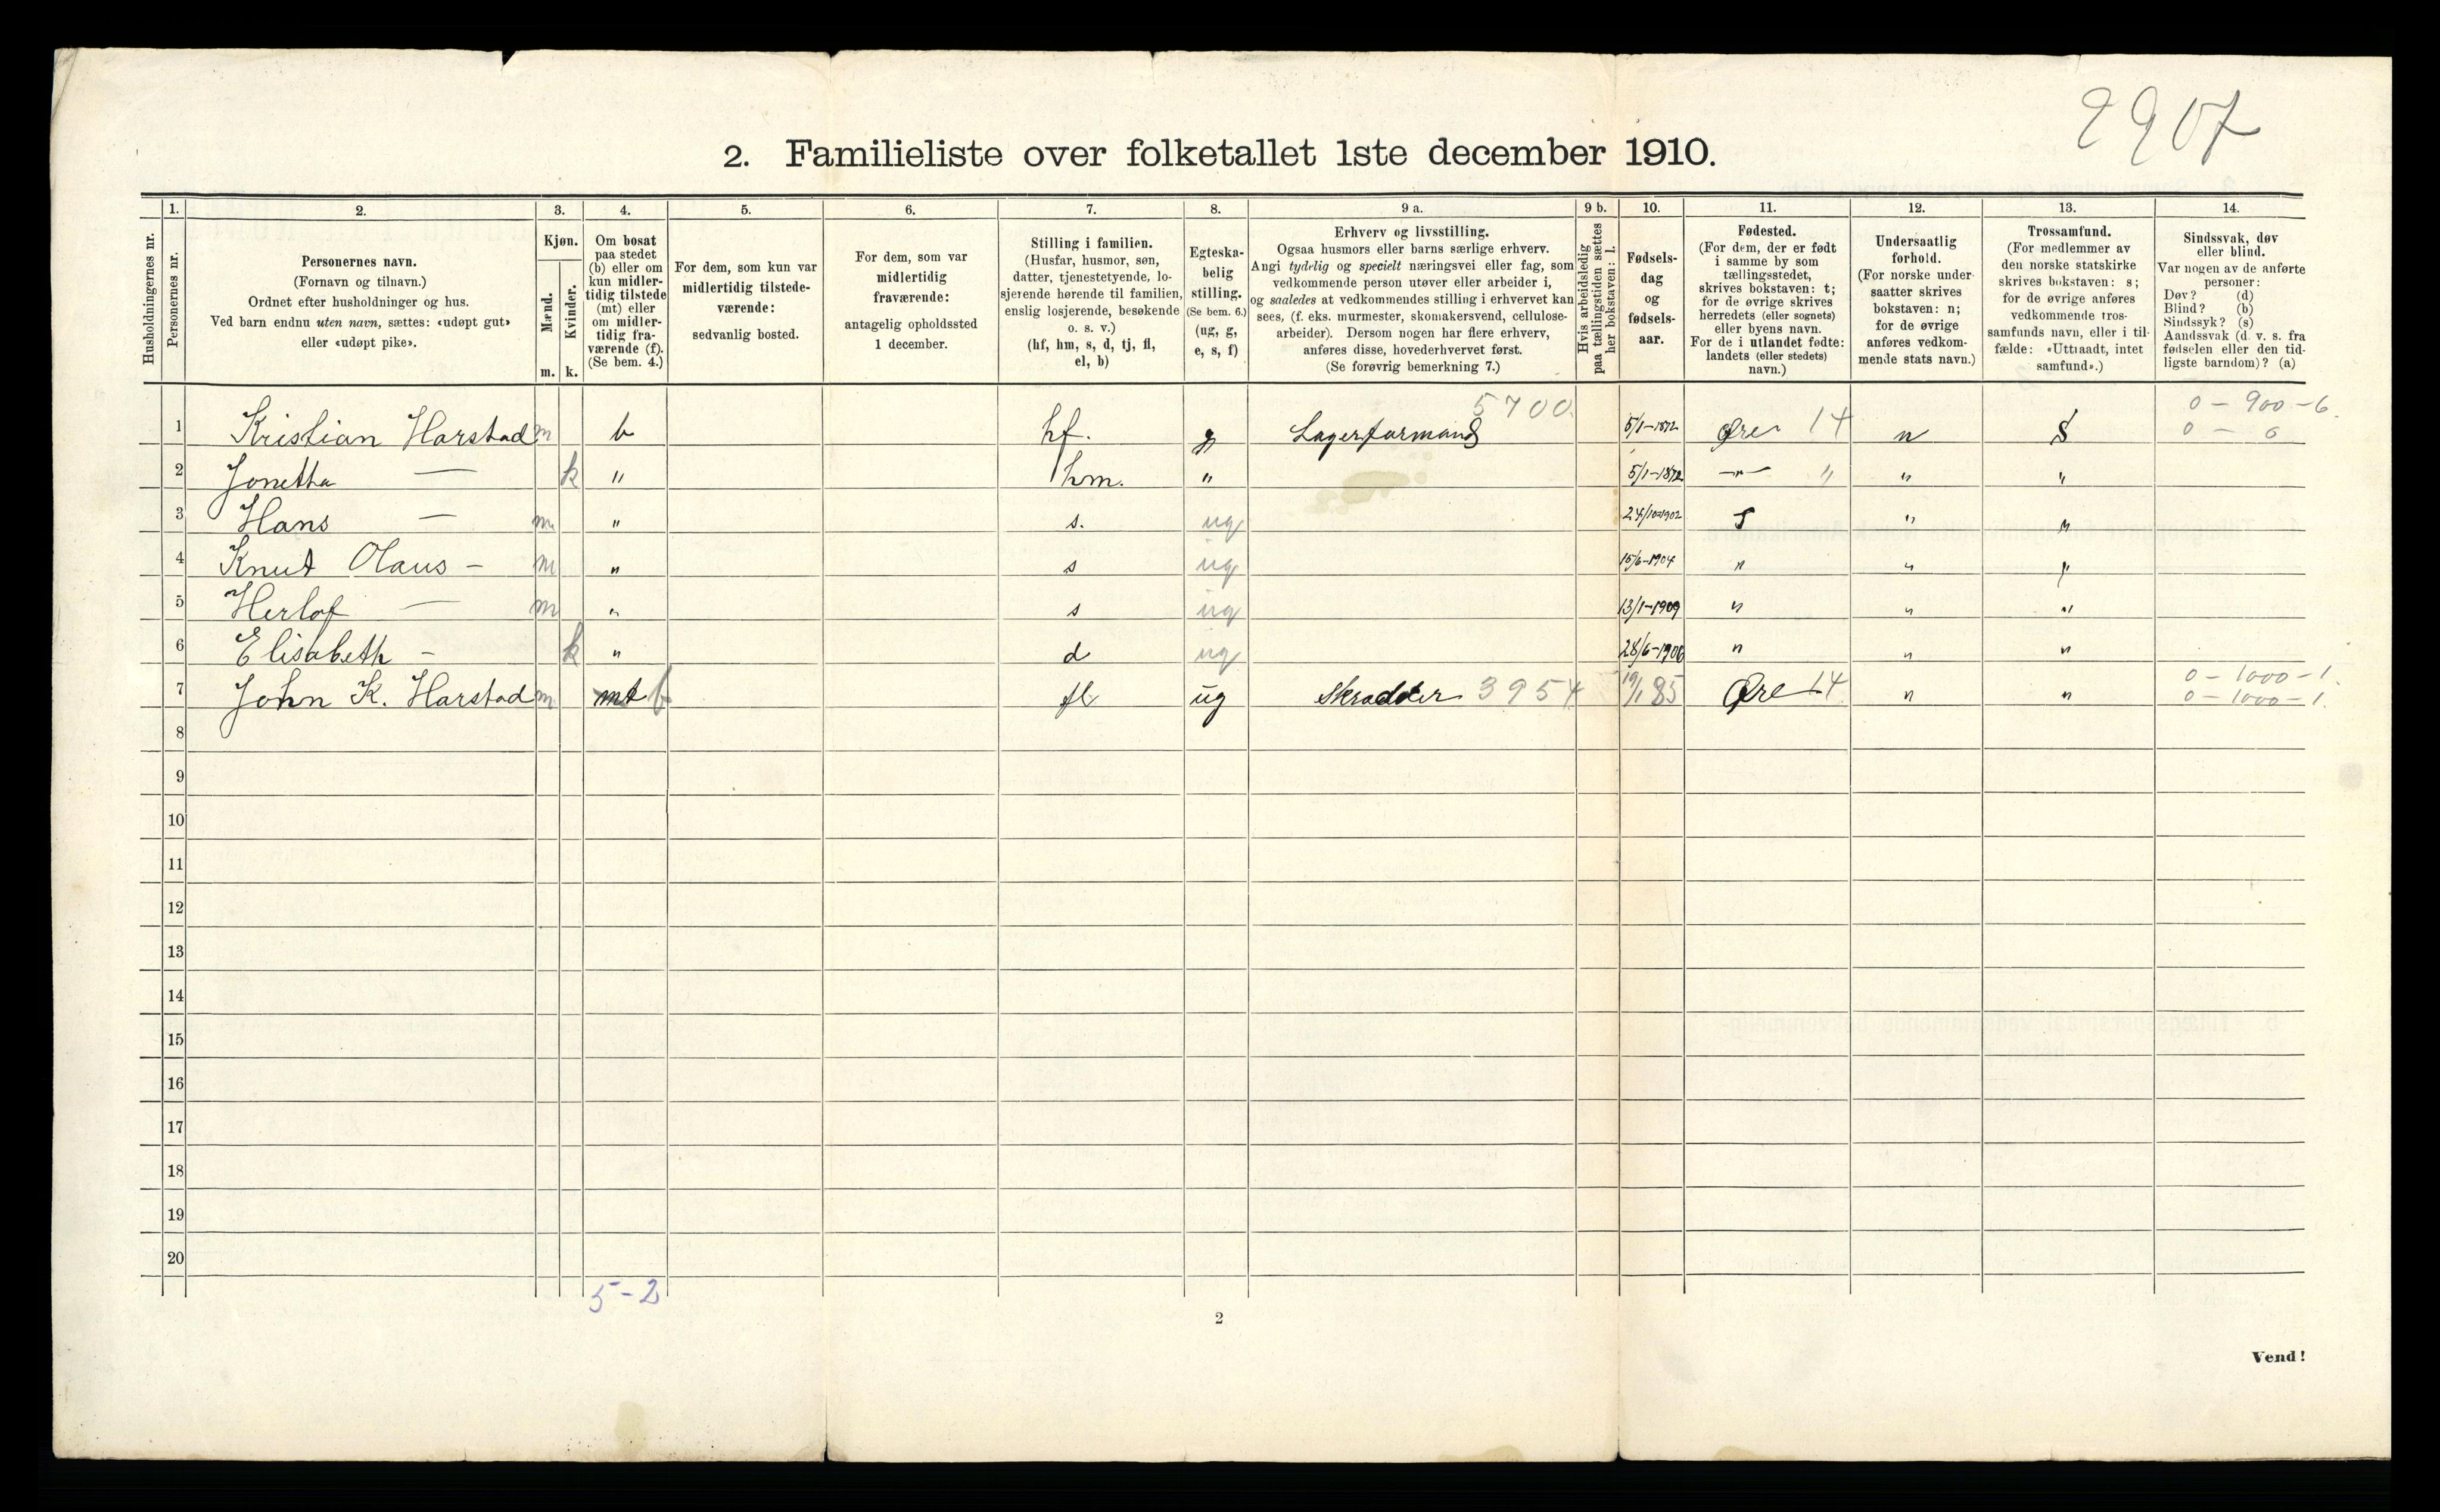 2907
2. Familieliste over folketallet 1ste december 1910.
1. 2. 3. 4. 5. 6. 7. 8. 9 a. 9 b. 10. 11. 12. 13. 14.
Husholdningernes nr.
Personernes nr.
Personernes navn.
(Fornavn og tilnavn.)
Ordnet efter husholdninger og hus.
Ved barn endnu uten navn, sættes: «udøpt gut»
eller «udøpt pike».
Kjøn.
Mænd.
Kvinder.
m. k.
Om bosat
paa stedet
(b) eller om
kun midler-
tidig tilstede
(mt) eller
om midler-
tidig fra-
værende (f).
(Se bem. 4.)
For dem, som kun var
midlertidig tilstede-
værende:
sedvanlig bosted.
For dem, som var
midlertidig
fraværende:
antagelig opholdssted
1 december.
Stilling i familien.
(Husfar, husmor, søn,
datter, tjenestetyende, lo-
sjerende hørende til familien,
enslig losjerende, besøkende
o. s. v.)
(hf, hm, s, d, tj, fl,
el, b)
Egteska-
belig
stilling.
(Se bem. 6.)
(ug, g,
e, s, f)
Erhverv og livsstilling.
Ogsaa husmors eller barns særlige erhverv.
Angi tydelig og specielt næringsvei eller fag, som
vedkommende person utøver eller arbeider i,
og saaledes at vedkommendes stilling i erhvervet kan
sees, (f. eks. murmester, skomakersvend, cellulose-
arbeider). Dersom nogen har flere erhverv,
anføres disse, hovederhvervet først.
(Se forøvrig bemerkning 7.)
Hvis arbeidsledig
paa tællingstiden sættes
her bokstaven: l.
Fødsels-
dag
og
fødsels-
aar.
Fødested.
(For dem, der er født
i samme by som
tællingsstedet,
skrives bokstaven: t;
for de øvrige skrives
herredets (eller sognets)
eller byens navn.
For de i utlandet fødte:
landets (eller stedets)
navn.)
Undersaatlig
forhold.
(For norske under-
saatter skrives
bokstaven: n;
for de øvrige
anføres vedkom-
mende stats navn.)
Trossamfund.
(For medlemmer av
den norske statskirke
skrives bokstaven: s;
for de øvrige anføres
vedkommende tros-
samfunds navn, eller i til-
fælde: «Uttraadt, intet
samfund».)
Sindssvak, døv
eller blind.
Var nogen av de anførte
personer:
Døv? (d)
Blind? (b)
Sindssyk? (s)
Aandssvak (d. v. s. fra
fødselen eller den tid-
ligste barndom)? (a)
5700 0 - 900 - 6.
1 Kristian Harstad m b hf. g Lagerformand 5/1-1872 Øre 14 n S 0 - 6
2 Jonetha — k " hm. " 5/1-1872 —"— " " "
3 Hans — m " s. ug 24/10-1902 " "
4 Knut Olaus - m " s ug 15/6-1904 " " "
5 Herlof — m " s ug 13/1-1909 " " "
6 Elisabeth - k " d ug 28/6-1906 " " "
0 - 1000 - 1.
7 John K. Harstad m mt b fl ug Skrædder 3954 19/1 85 Øre 14 n " 0 - 1000 - 1.
8
9
10
11
12
13
14
15
16
17
18
19
20
5-2
2
Vend!